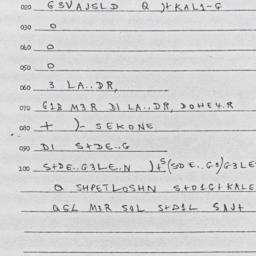 020 G3VAJSLD Q )+KAL1-G
030 0
040 0
050 0
060 3 LA..DR,
070 G1B M3R DI LA..DR, JOHE4.R
080 + )- SEKONE
090 DI S+DE..G
100 S+DE..G3LE..N )+S(SDE..G3)G3LE
Q SHPETLOSHN S+O1G+KALE
QGL M3R SQL S+D1L SAJ+